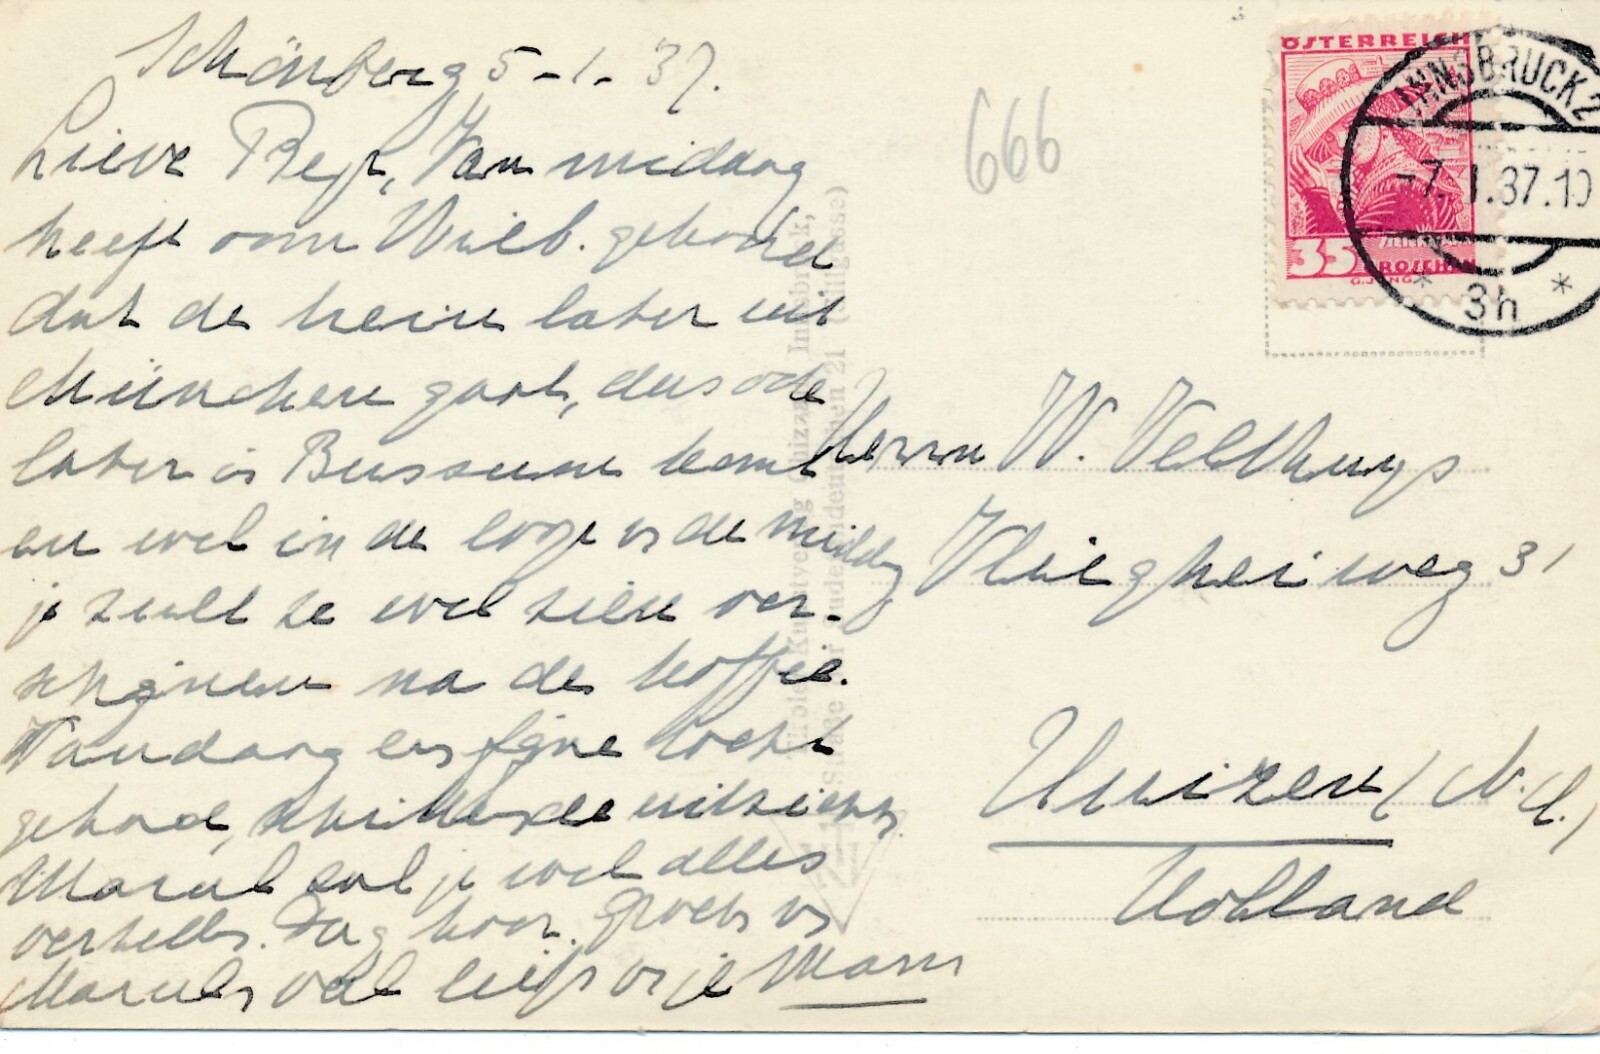 Schönberg 5-1-37.
Lieve Bep, Van middag
heeft oom Wilb. gehoord
dat de trein later uit
München gaat, dus ook
later in Bussum komt
en wel in de loop v. de middag
je zult ze wel zien ver-
schijnen na de koffie.
Vandaag een fijne tocht
gehad, schitterende uitzichten.
Marul zal je wel alles
vertellen. Dag hoor. Groeten v.
Maruls, veel liefs v. je Mam
666
ÖSTERREICH
35
GROSCHEN
INNSBRUCK 2
-7.I.37.10
* 3h *
Herrn W. Velthuys
Vliegheiweg 31
Huizen (N.H.)
Holland
Tiroler Kunstverlag Chizzali, Innsbruck,